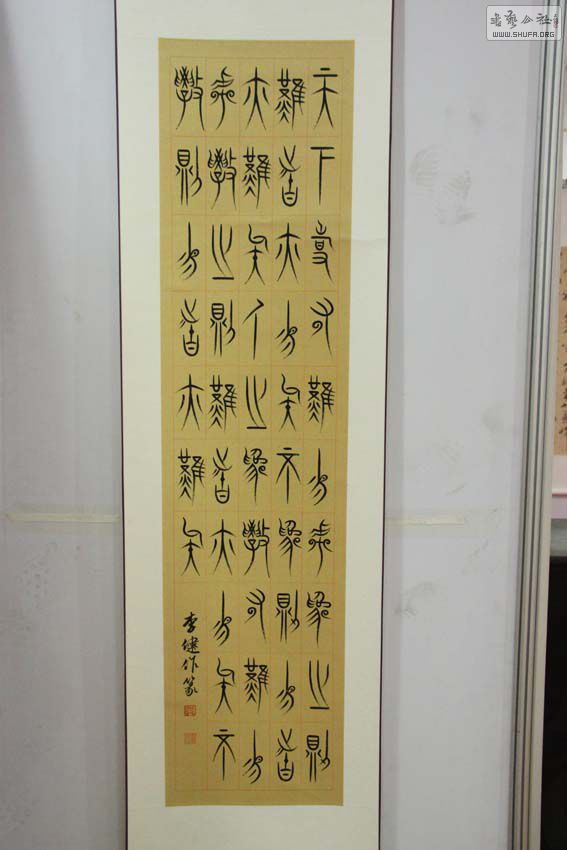 天下事有難易乎為之則
難者亦易矣不為則易者
亦難矣人之為學有難易
乎學之則難者亦易矣不
學則易者亦難矣
李健作篆
書藝公社
WWW.SHUFA.ORG